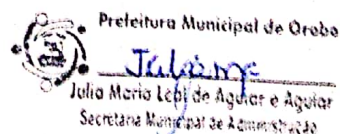 Prefeitura Municipal de Orobo
Julia Maria Leal de Aguiar e Aguiar
Secretaria Municipal de Administração